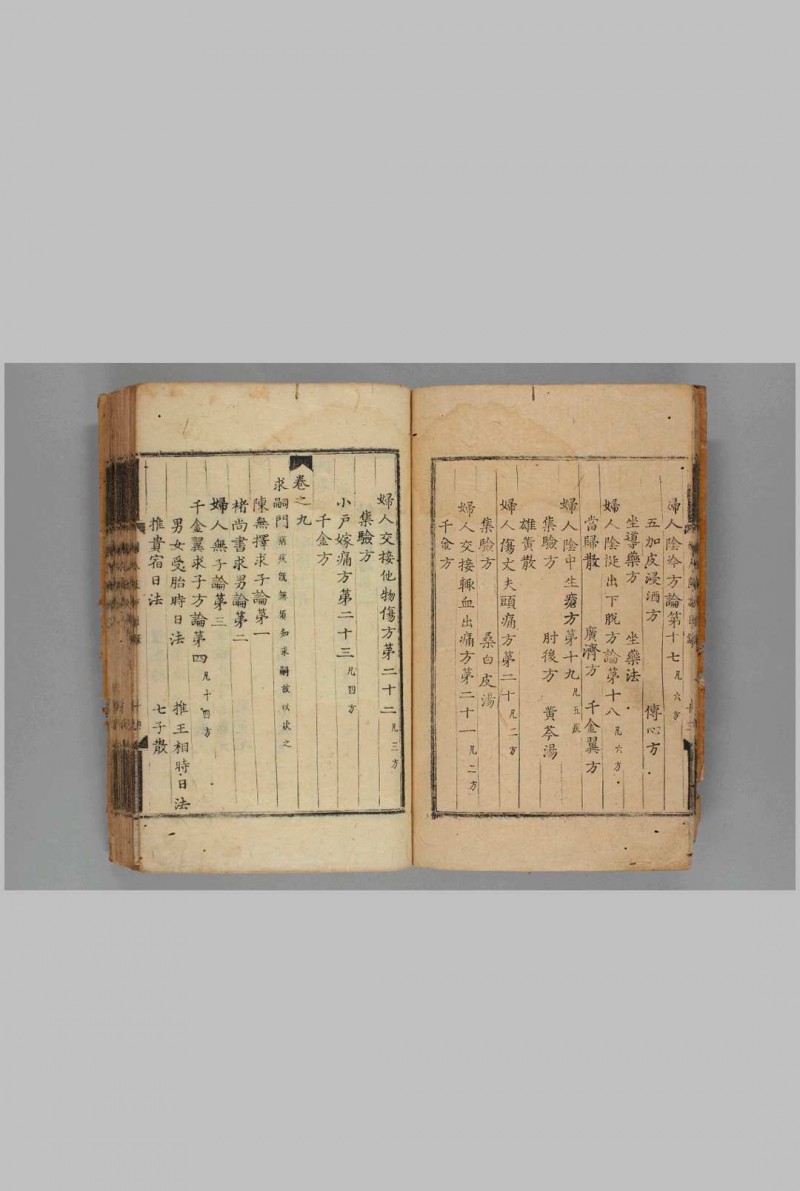 婦人陰冷方論第十七 凡六方
五加皮浸酒方 傳心方
坐導藥方 坐藥法
婦人陰挺出下脫方論第十八 凡六方
當歸散 廣濟方 千金翼方
婦人陰中生瘡方第十九 凡五
集驗方 肘後方 黃芩湯
雄黃散
婦人傷丈夫頭痛方第二十 凡二方
集驗方 桑白皮湯
婦人交接輒血出痛方第二十一 凡二方
千金方
婦人交接他物傷方第二十二 凡三方
集驗方
小戶嫁痛方第二十三 凡四方
千金方
卷之九
求嗣門 病疾既無須知求嗣故以次之
陳無擇求子論第一
褚尚書求男論第二
婦人無子論第三
千金翼求子方論第四 凡十四方
男女受胎時日法 推王相時日法
推貴宿日法 七子散